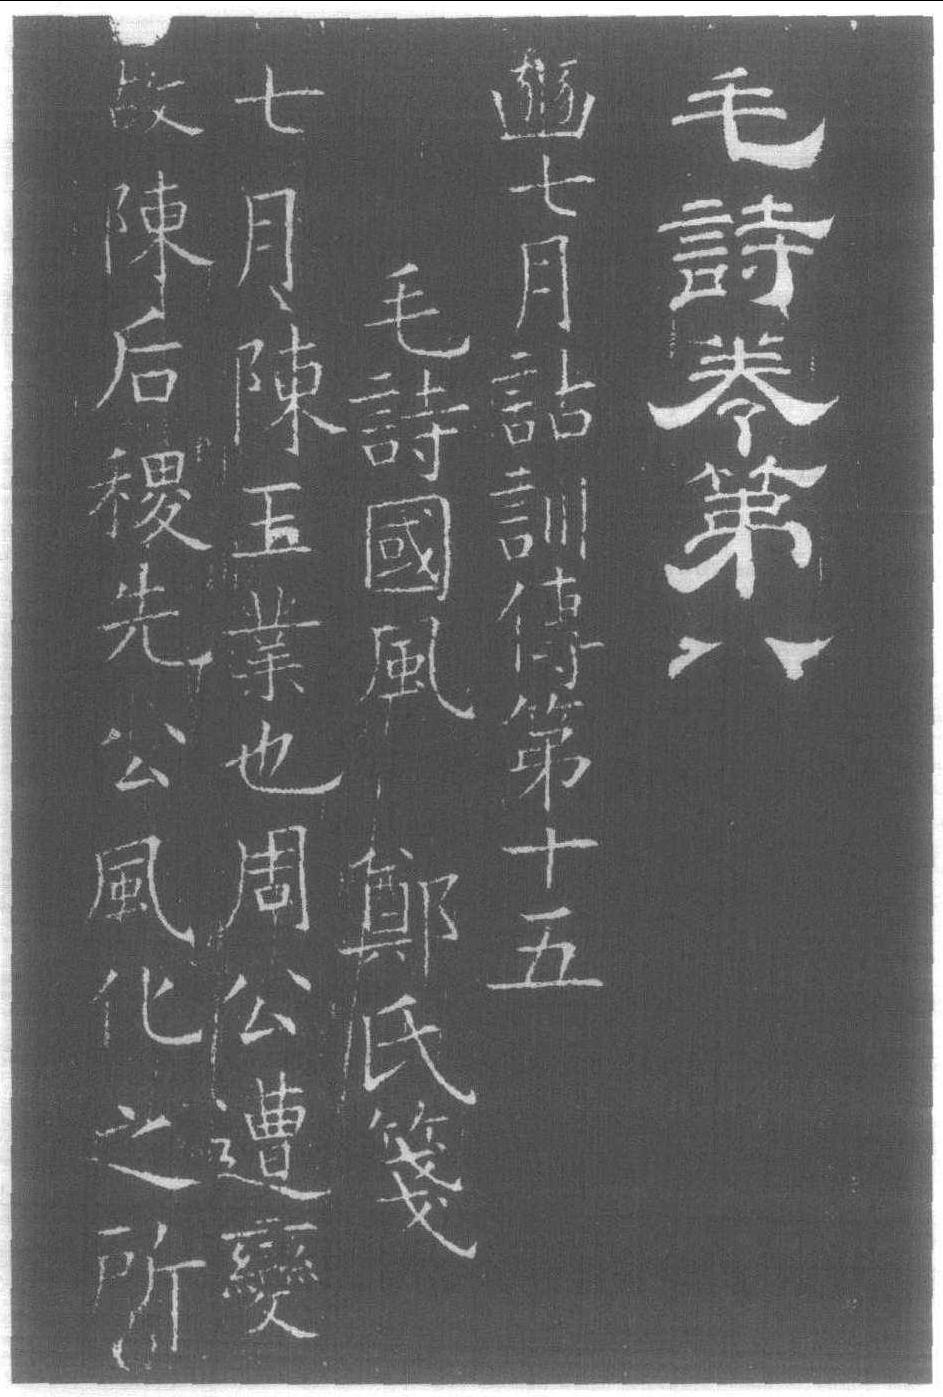 毛詩卷第八
豳七月詁訓傳第十五
毛詩國風 鄭氏箋
七月陳王業也周公遭變
故陳后稷先公風化之所